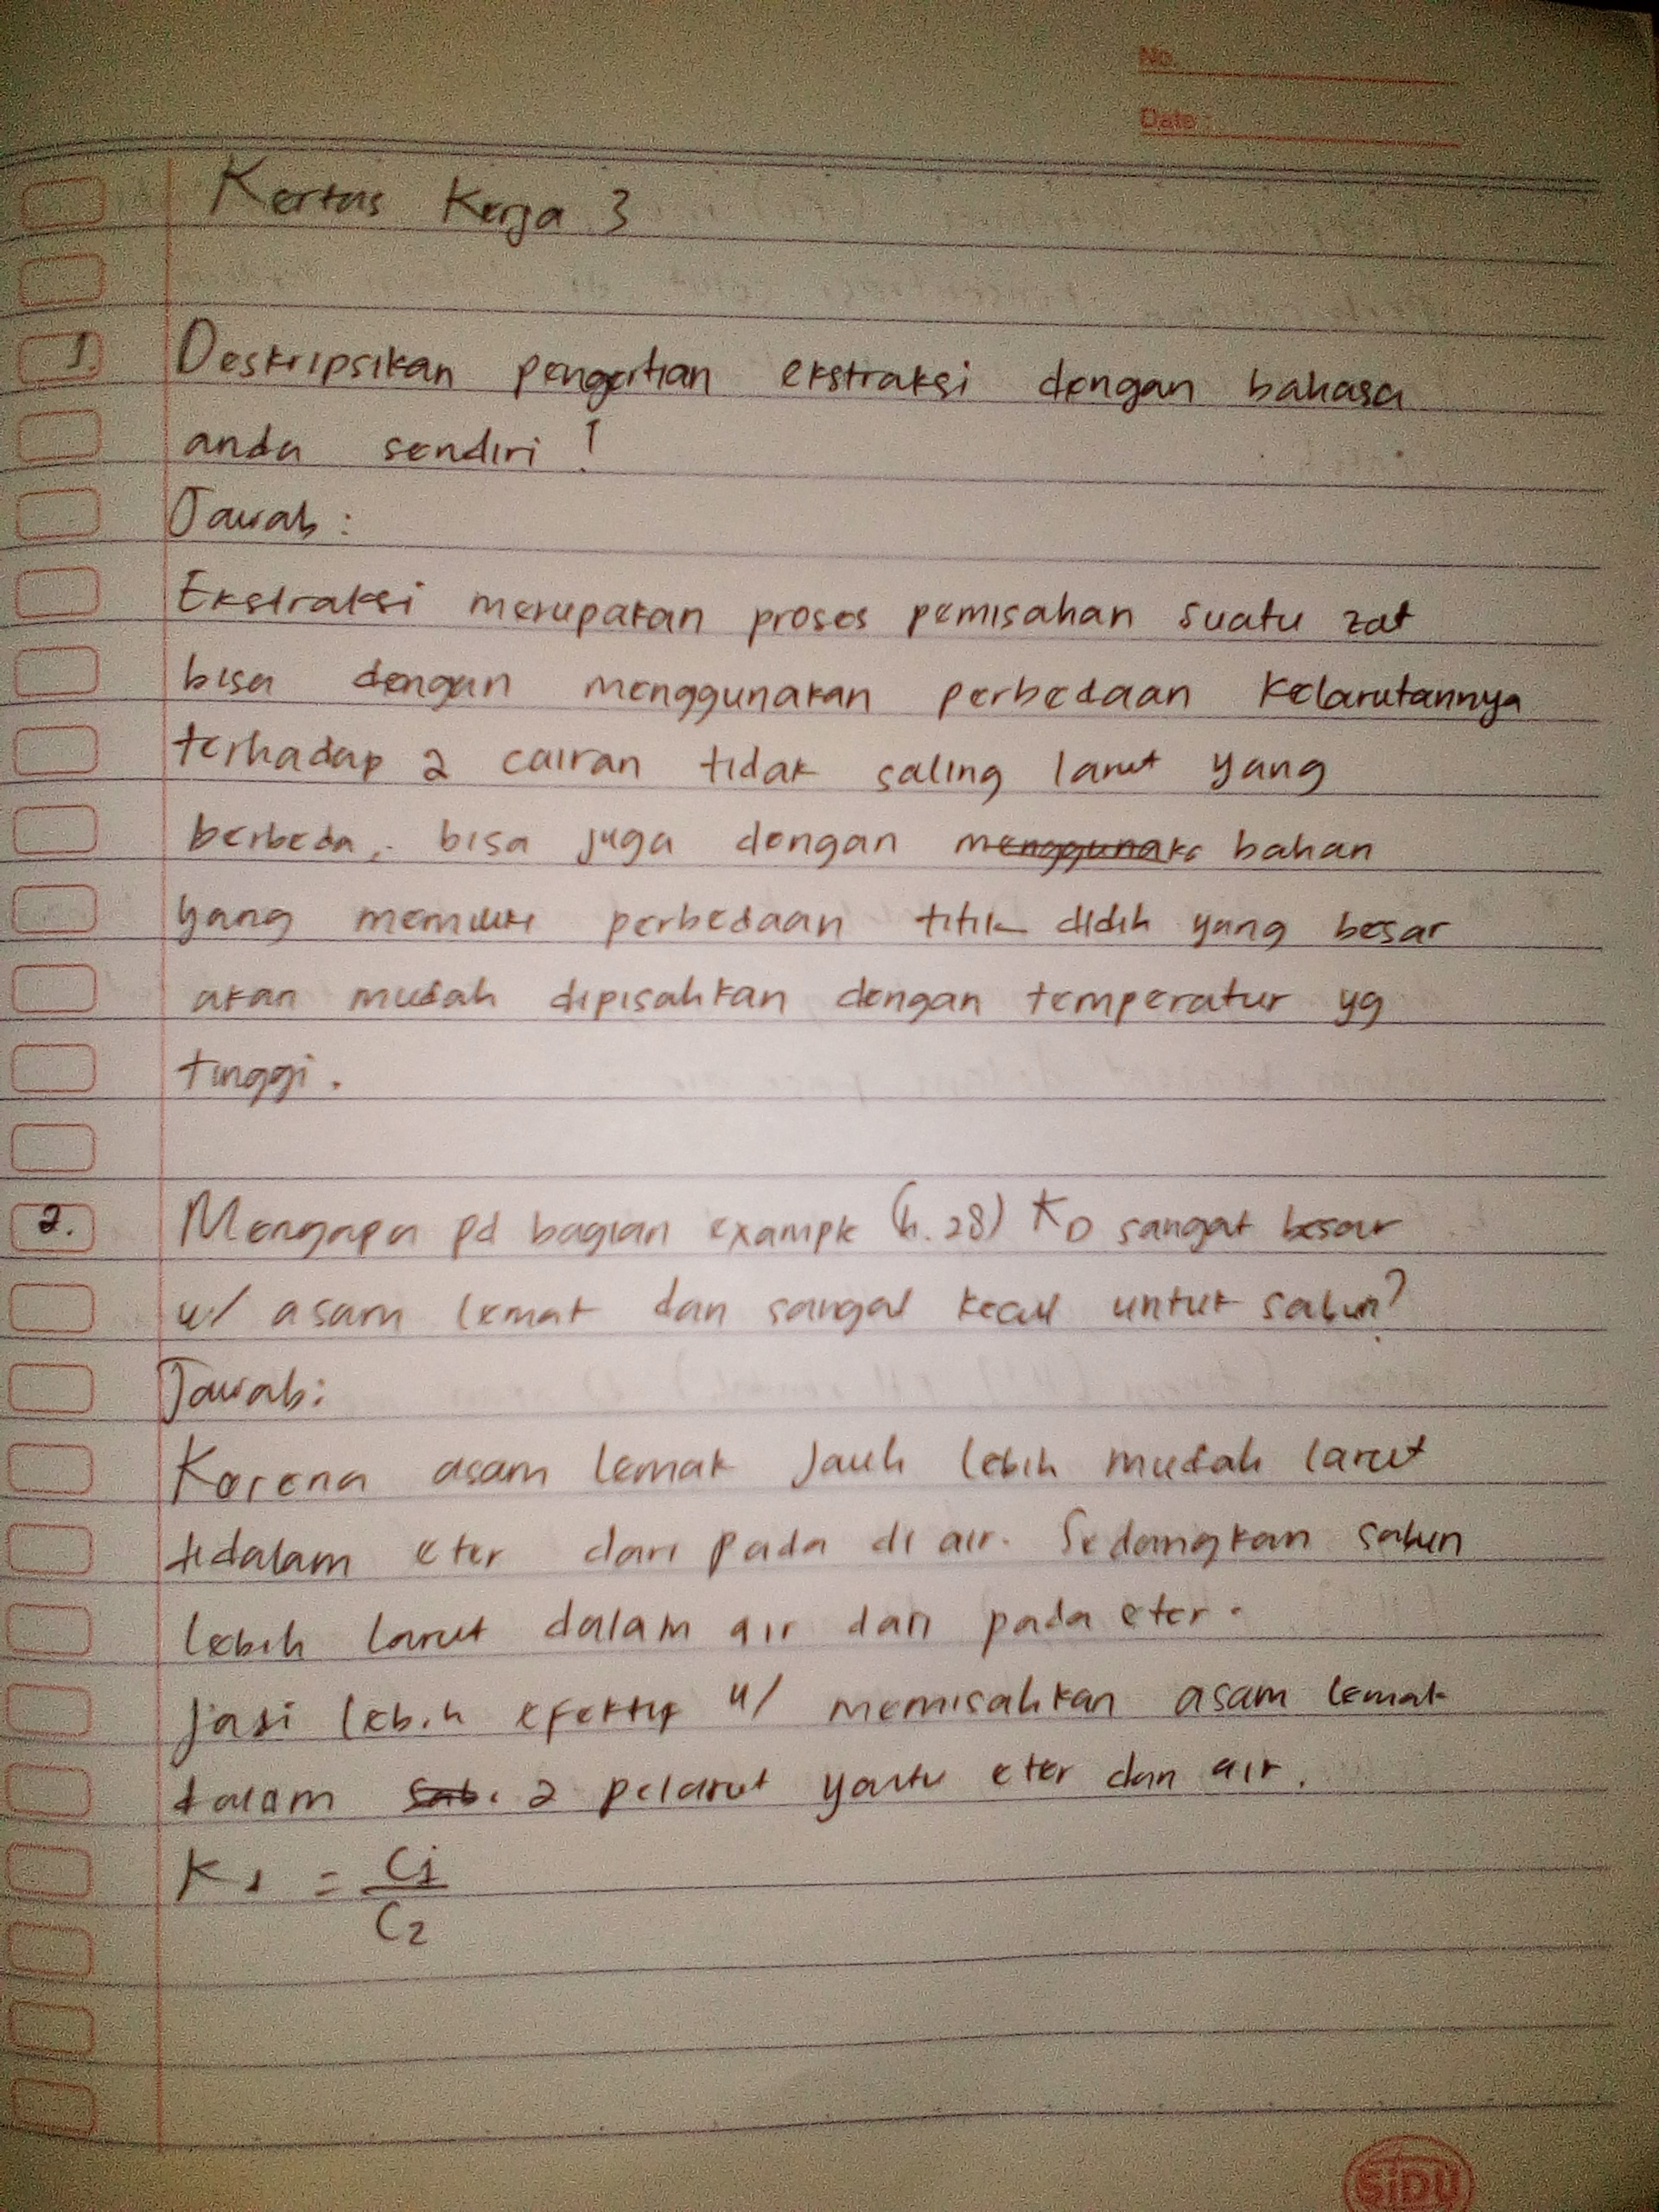 No.
Date :
Kertas Kerja 3
1. Deskripsikan pengertian ekstraksi dengan bahasa
anda sendiri !
Jawab :
Ekstraksi merupakan proses pemisahan suatu zat
bisa dengan menggunakan perbedaan kelarutannya
terhadap 2 cairan tidak saling larut yang
berbeda, bisa juga dengan bahan
yang memiliki perbedaan titik didih yang besar
akan mudah dipisahkan dengan temperatur yg
tinggi.
2. Mengapa pd bagian example (h.28) KD sangat besar
u/ asam lemak dan sangat kecil untuk sabun?
Jawab:
Karena asam lemak jauh lebih mudah larut
didalam eter dari pada di air. Sedangkan sabun
lebih larut dalam air dari pada eter.
jadi lebih efektif u/ memisahkan asam lemak
dalam 2 pelarut yaitu eter dan air.
Kd = C1/C2
SiDU